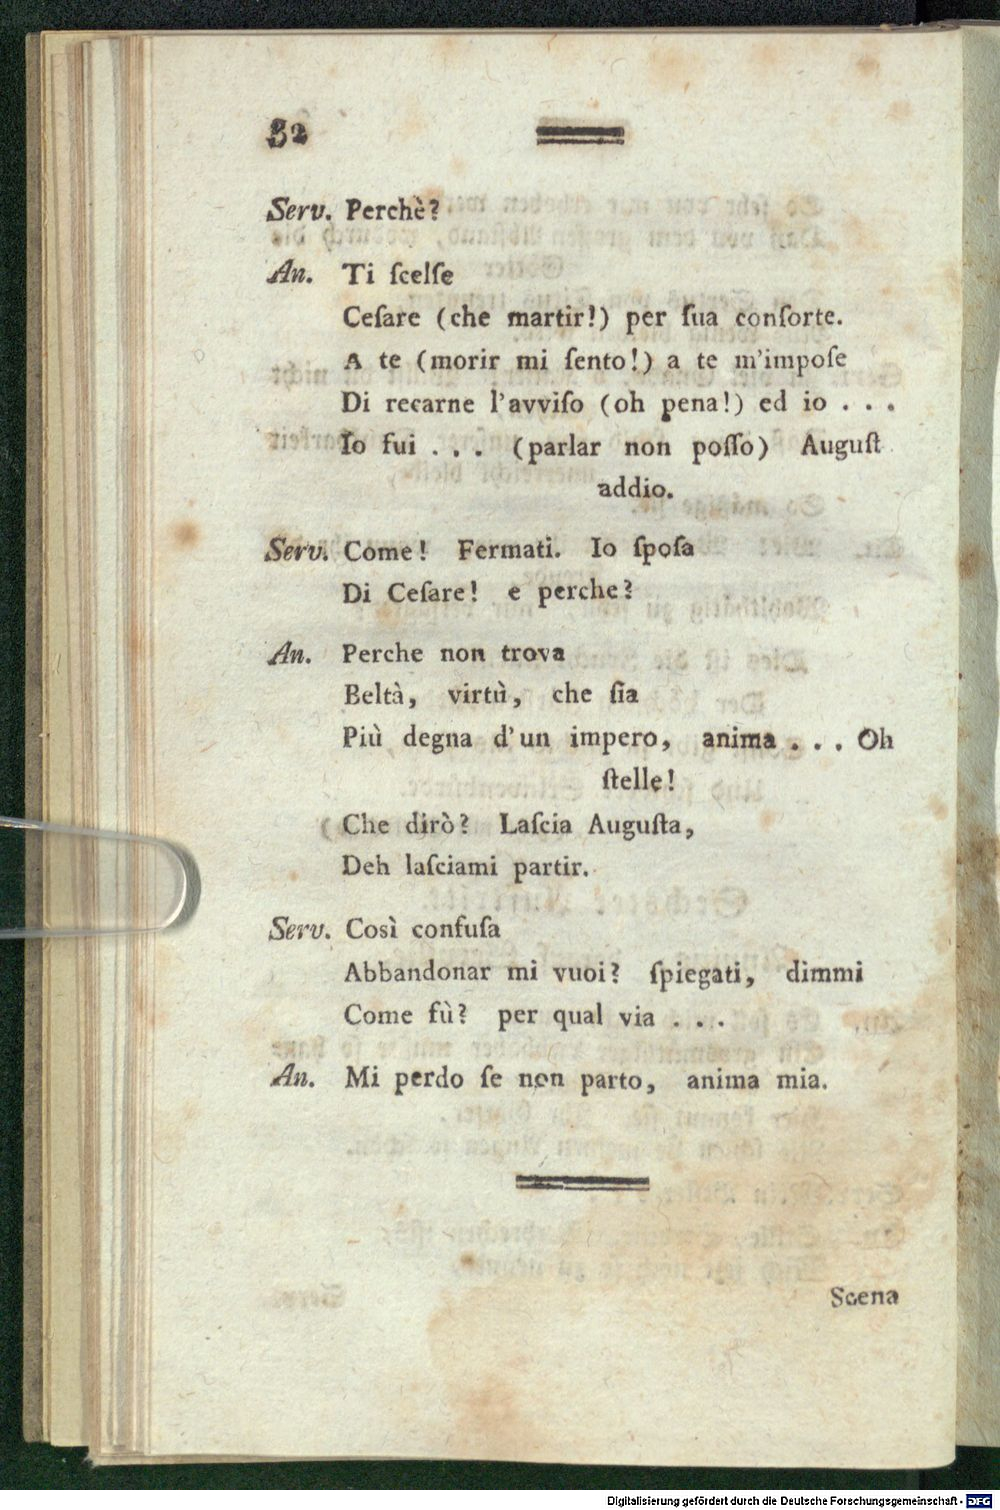 32
Serv. Perchè?
An. Ti ſcelſe
Ceſare (che martir!) per ſua conſorte.
A te (morir mi ſento!) a te m'impoſe
Di recarne l'avviſo (oh pena!) ed io . . .
Io fui . . . (parlar non poſſo) Auguſt
addio.
Serv. Come! Fermati. Io ſpoſa
Di Ceſare! e perche?
An. Perche non trova
Beltà, virtù, che ſia
Più degna d'un impero, anima . . . Oh
ſtelle!
Che dirò? Laſcia Auguſta,
Deh laſciami partir.
Serv. Così confuſa
Abbandonar mi vuoi? ſpiegati, dimmi
Come fù? per qual via . . .
An. Mi perdo ſe non parto, anima mia.
Scena
Digitalisierung gefördert durch die Deutsche Forschungsgemeinschaft - DFG